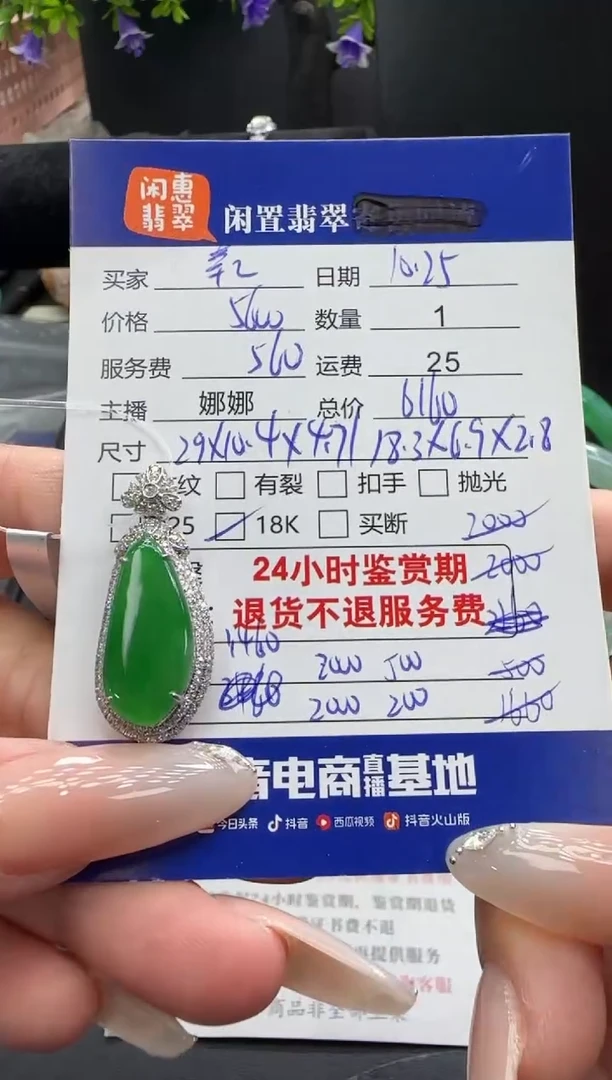 闲惠
翡翠
闲置翡翠
买家 日期 10.25
价格 5600 数量 1
服务费 560 运费 25
主播 娜娜 总价 6160
尺寸 29X10.4X4.71 18.3X6.9X2.8
纹 有裂 扣手 抛光
25 18K 买断 2000
24小时鉴赏期 2000
退货不退服务费
1460
2000 500 500
2000 200 1660
电商直播基地
今日头条 抖音 西瓜视频 抖音火山版
24小时鉴赏期，鉴赏期退货
证书费不退
提供服务
商品非